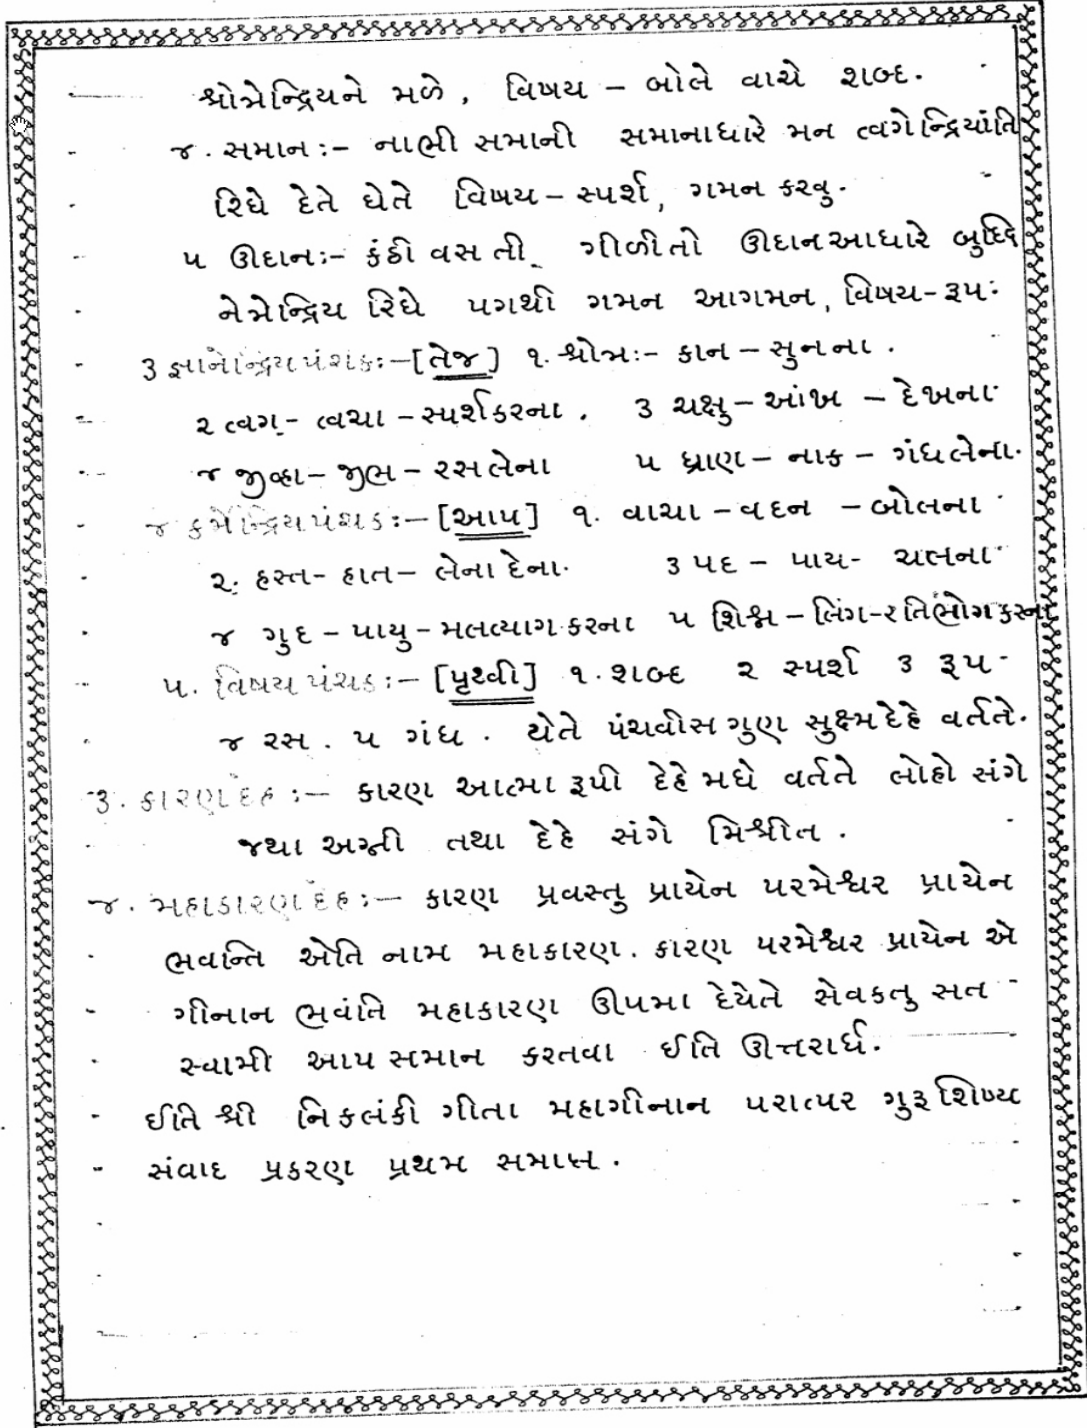 શ્રોત્રેન્દ્રિયને મળે , વિષય – બોલે વાચે શબ્દ.
૪. સમાન:- નાભી સમાની સમાનાધારે મન ત્વગેન્દ્રિયાંતિ
રિઘે દેતે ઘેતે વિષય – સ્પર્શ, ગમન કરવુ.
૫ ઊદાન:- કંઠી વસતી ગીળીતો ઊદાનઆધારે બુધ્દિ
નેત્રેન્દ્રિય રિઘે પગથી ગમન આગમન, વિષય- રૂપ:
૩ જ્ઞાનેન્દ્રિય પંચક:-[તેજ] ૧. શ્રોત્ર:- કાન – સુનના .
૨ ત્વગ્- ત્વચા – સ્પર્શકરના . ૩ ચક્ષુ – આંખ – દેખના
૪ જીવ્હા – જીભ – રસલેના ૫ ઘ્રાણ – નાક – ગંધલેના.
૪ કર્મેન્દ્રિય પંચક:-[આપ] ૧. વાચા – વદન – બોલના
૨. હસ્ત- હાત – લેના દેના. ૩ પદ – પાય- ચલના
૪ ગુદ – પાયુ – મલત્યાગ કરના ૫ શિશ્ન – લિંગ- રતિભોગ કરના
૫. વિષય પંચક:-[પૃથ્વી] ૧. શબ્દ ૨ સ્પર્શ ૩ રૂપ
૪ રસ . ૫ ગંધ . યેતે પંચવીસ ગુણ સુક્ષ્મદેહે વર્તતે.
૩. કારણ દેહ :- કારણ આત્મા રૂપી દેહે મધે વર્તતે લોહો સંગે
જથા અગ્ની તથા દેહે સંગે મિશ્રીત .
૪. મહાકારણ દેહ :- કારણ પ્રવસ્તુ પ્રાયેન પરમેશ્વર પ્રાયેન
ભવન્તિ એતિ નામ મહાકારણ. કારણ પરમેશ્વર પ્રાયેન એ
ગીનાન ભવંતિ મહાકારણ ઊપમા દેયેતે સેવકતુ સત
સ્વામી આપ સમાન કરતવા ઈતિ ઊત્તરાર્ધ.
ઈતિ શ્રી નિકલંકી ગીતા મહાગીનાન પરાત્પર ગુરૂ શિષ્ય
સંવાદ પ્રકરણ પ્રથમ સમાપ્ત .